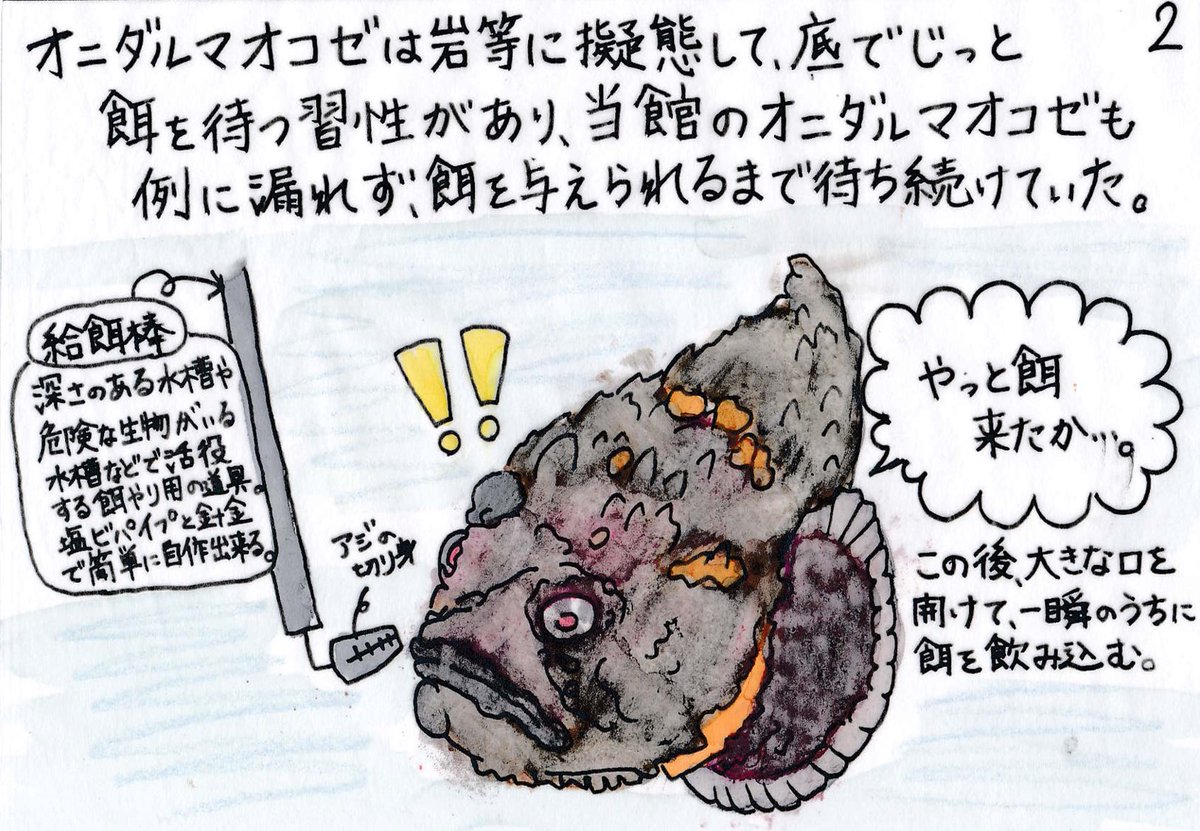 2
オニダルマオコゼは岩等に擬態して、底でじっと
餌を待つ習性があり、当館のオニダルマオコゼも
例に漏れず、餌を与えられるまで待ち続けていた。
給餌棒
深さのある水槽や
危険な生物がいる
水槽などで活役
する餌やり用の道具。
塩ビパイプと針金
で簡単に自作出来る。
アジの
切り身
!!
やっと餌
来たか…。
この後、大きな口を
開けて、一瞬のうちに
餌を飲み込む。